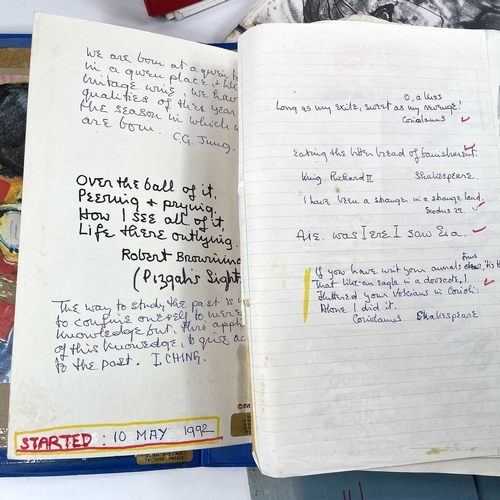 We are born at a given
in a given place + like
vintage wine, we have
qualities of this year
the season in which
are born. C.G. Jung.
Over the ball of it,
Peering + prying,
How I see all of it,
Life there outlying.
Robert Browning
(Pizgah Sight
The way to study the past is
to confine oneself to mere
knowledge but, thro appli
of this knowledge, to give ac
to the past. I. CHING.
STARTED: 10 MAY 1992
O, a kiss
Long as my exile, sweet as my revenge!
Coriolanus
Eating the bitter bread of banishment.
King Richard II Shakespeare.
I have been a stranger in a strange land.
Exodus 22.
Are was I ere I saw Era.
If you have writ your annals true, 'tis th
That like an eagle in a dovecote, I
Fluttered your Volscians in Corioli.
Alone I did it.
Coriolanus Shakespeare